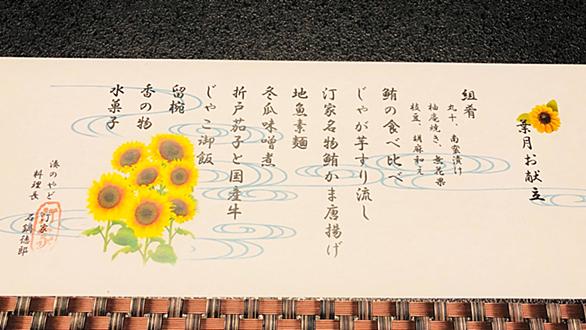 葉月お献立
組肴
丸十、南蛮漬け
柚庵焼き、無花果
枝豆、胡麻和え
鮪の食べ比べ
じゃが芋すり流し
汀家名物鮪かま唐揚げ
地魚素麺
冬瓜味噌煮
折戸茄子と国産牛
じゃこ御飯
留椀
香の物
水菓子
湊のやど
汀家
料理長
石鍋徳郎